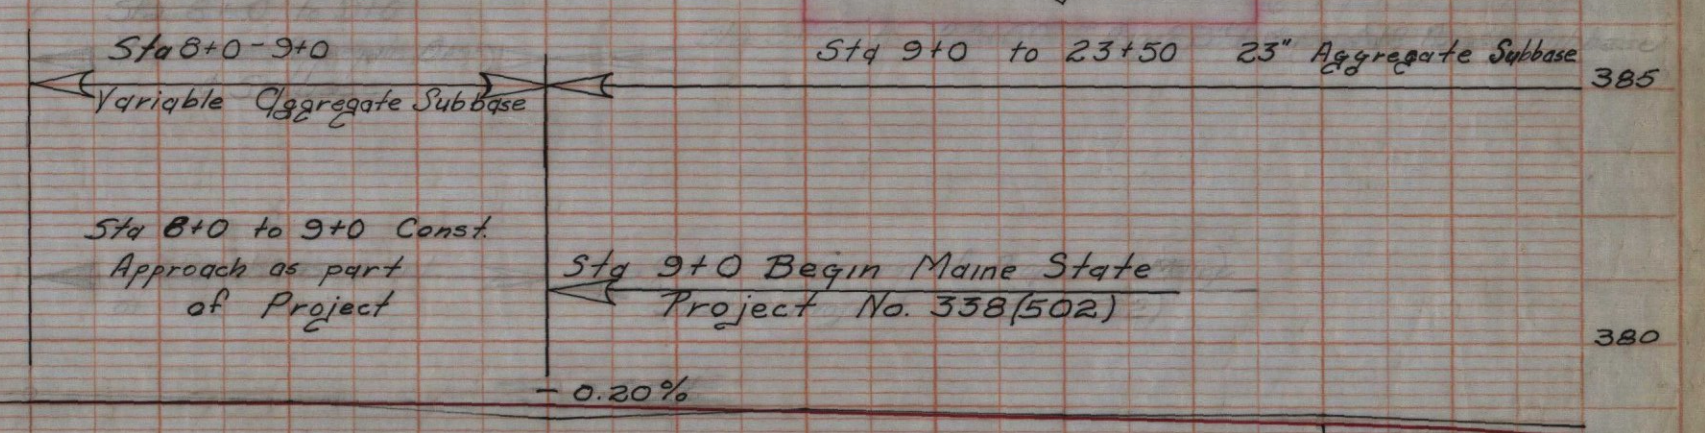 Sta 8+0 - 9+0
Variable Aggregate Subbase
Sta 9+0 to 23+50 23" Aggregate Subbase
385
Sta 8+0 to 9+0 Const.
Approach as part
of Project
Sta 9+0 Begin Maine State
Project No. 338(502)
380
- 0.20%